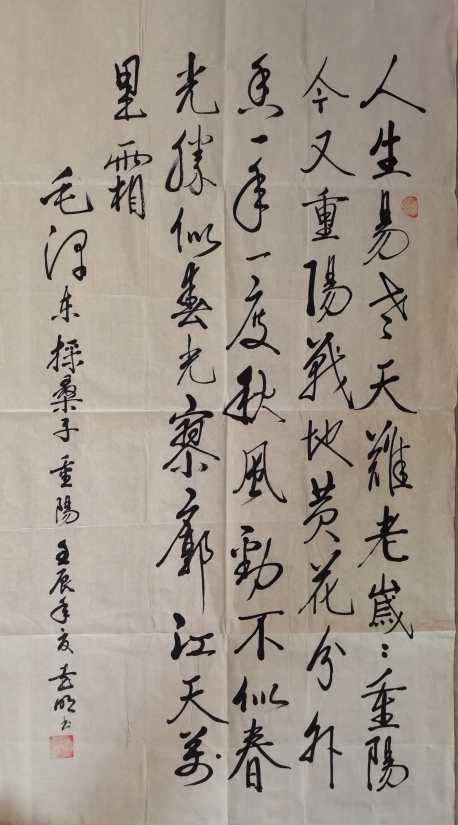 人生易老天難老歲々重陽
今又重陽戰地黄花分外
香一年一度秋風勁不似春
光勝似春光寥廓江天萬
里霜
毛澤东採桑子重陽壬辰年夏